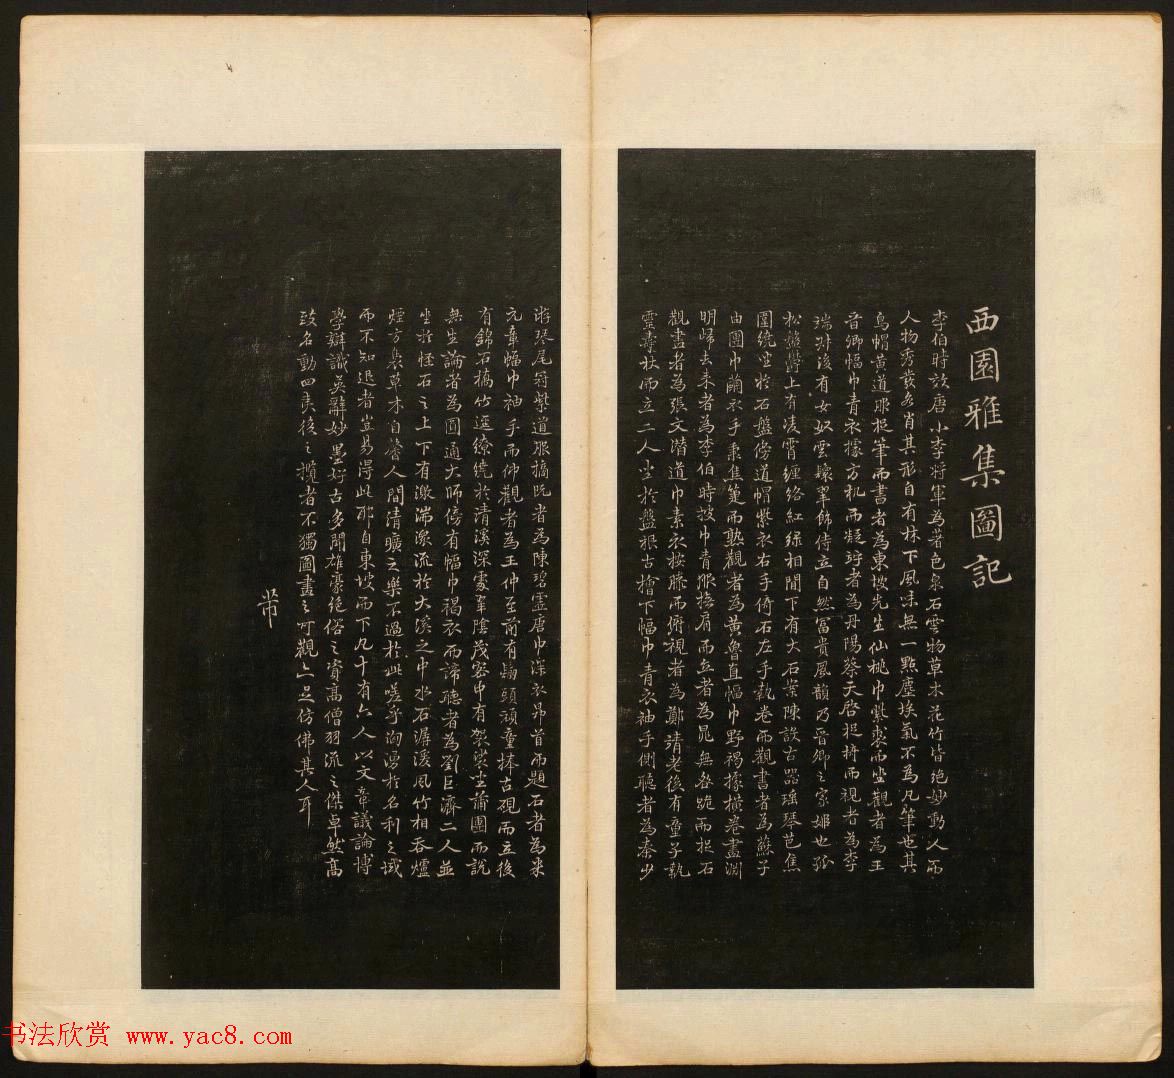 西園雅集圖記
李伯時效唐小李將軍為著色泉石雲物草木花竹皆絕妙動人而
人物秀發各肖其形自有林下風味無一點塵埃氣不為凡筆也其
烏帽黃道服捉筆而書者為東坡先生仙桃巾紫裘而坐觀者為王
晉卿幅巾青衣據方机而凝竚者為丹陽蔡天啓捉椅而視者為李
端叔後有女奴雲鬟翠飾侍立自然富貴風韻乃晉卿之家姬也孤
松盤鬱上有凌霄纏絡紅綠相間下有大石案陳設古器瑤琴芭蕉
圍繞坐於石盤傍道帽紫衣右手倚石左手執卷而觀書者為蘇子
由團巾繭衣手秉蕉箑而熟觀者為黃魯直幅巾野褐據橫卷畫淵
明歸去來者為李伯時披巾青服撫肩而立者為晁無咎跪而捉石
觀畫者為張文潛道巾素衣按膝而俯視者為鄭靖老後有童子執
靈壽杖而立二人坐於盤根古檜下幅巾青衣袖手側聽者為秦少
游琴尾冠紫道服摘阮者為陳碧虛唐巾深衣昂首而題石者為米
元章幅巾袖手而仰觀者為王仲至前有鬅頭頑童捧古硯而立後
有錦石橋竹逕繚繞於清溪深處翠陰茂密中有袈裟坐蒲團而說
無生論者為圓通大師傍有幅巾褐衣而諦聽者為劉巨濟二人並
坐於怪石之上下有激湍潨流於大溪之中水石潺湲風竹相吞爐
煙方裊草木自馨人間清曠之樂不過於此嗟乎洶湧於名利之域
而不知退者豈易得此耶自東坡而下凡十有六人以文章議論博
學辯識英辭妙墨好古多聞雄豪絕俗之資高僧羽流之傑卓然高
致名動四夷後之攬者不獨圖畫之可觀亦足仿佛其人耳
芾
书法欣赏 www.yac8.com